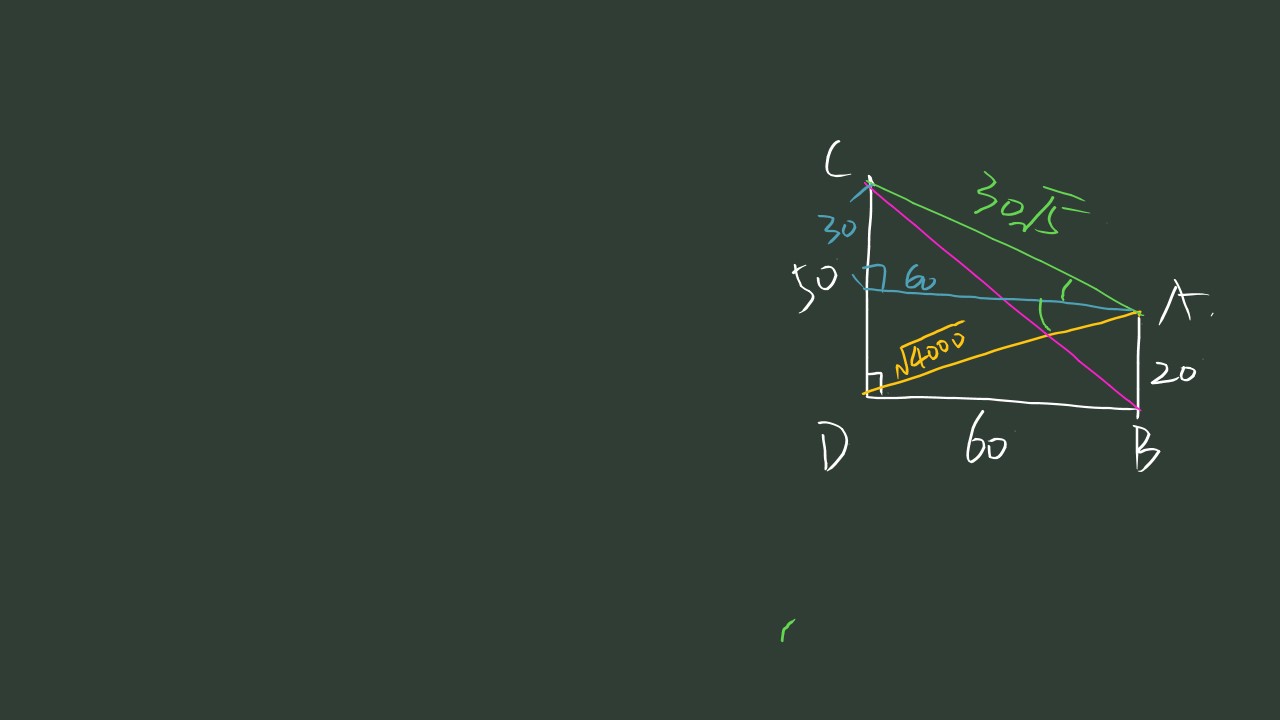 C
30√5
30
50
60
A
√4000
20
D
60
B